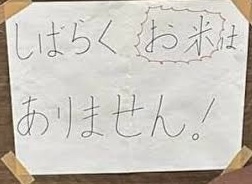 しばらくお米は
ありません!